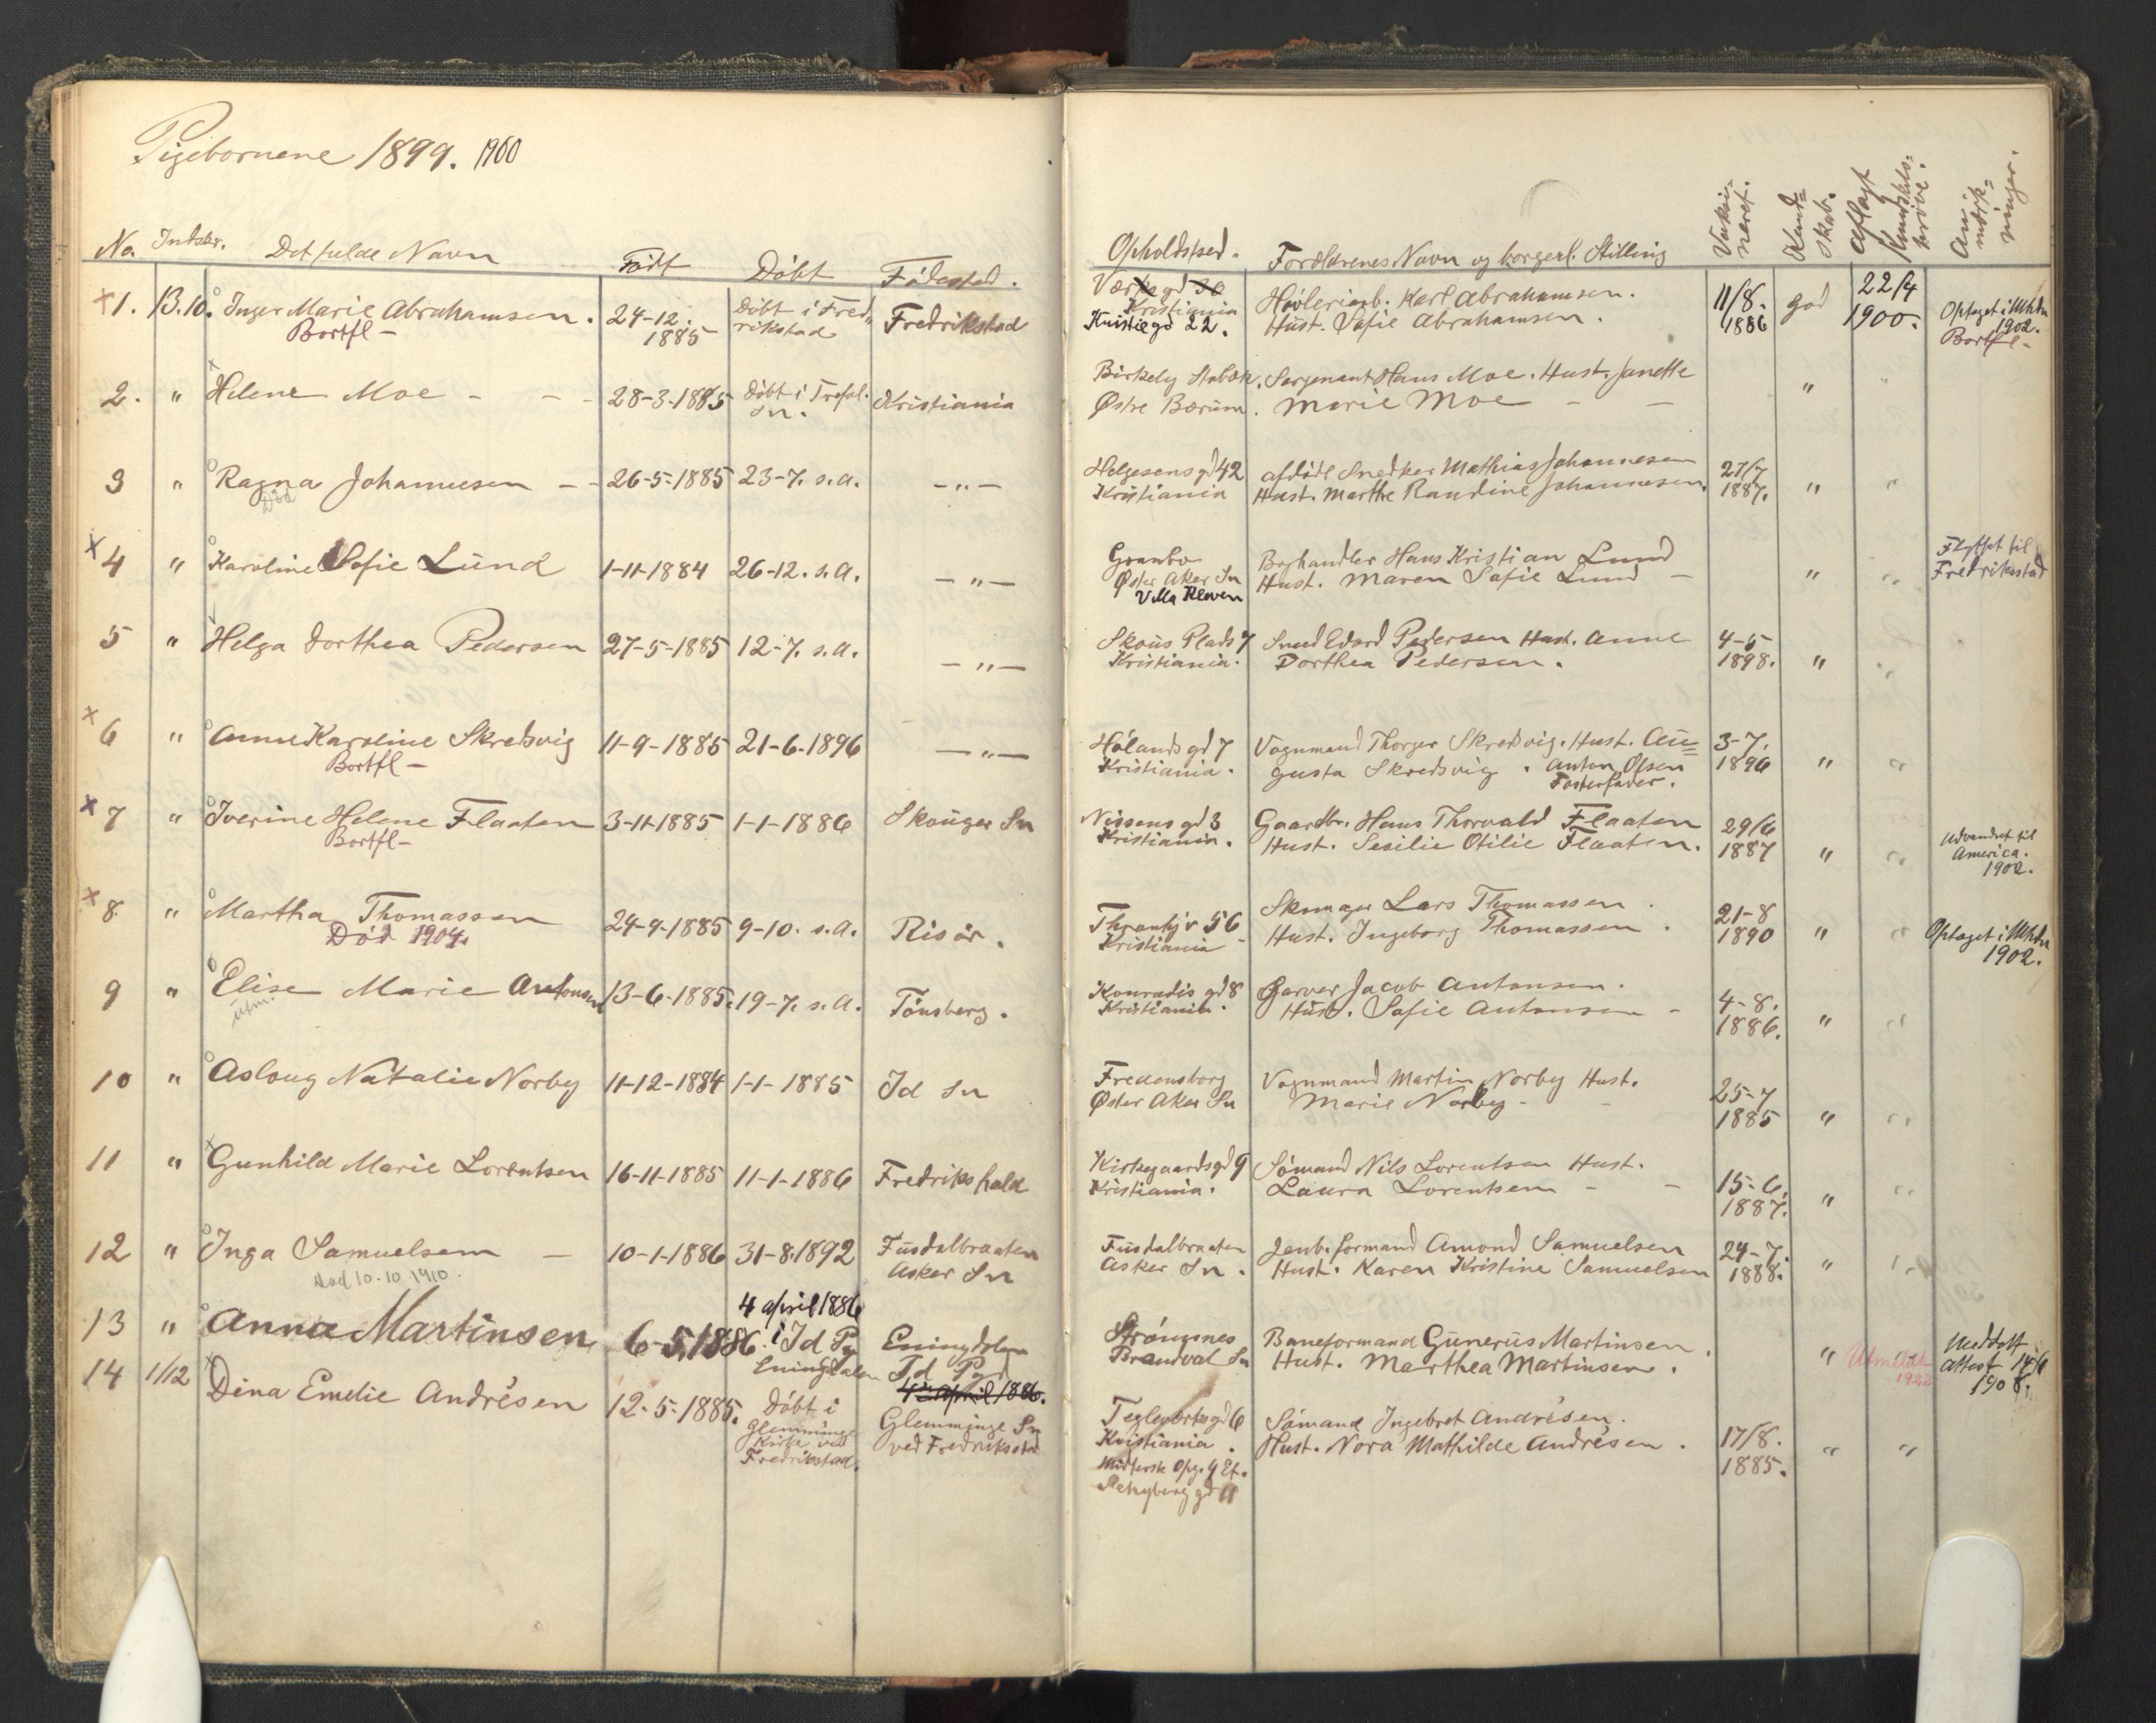 Pigebørnene 1899. 1900
No. Indskr. Det fulde Navn Født Døbt Fødested.
Opholdssted. Forældrenes Navn og borgerl. Stilling Vakci-neret. Kund-skab. Aflagt Kundskbs-prøve. An-mærk-ninger.
×1. 13.10. Inger Marie Abrahamsen. 24-12. 1885 Døbt i Fred-rikstad Fredrikstad
Bortfl-
Kristiania
22.
Høvleriarb. Karl Abrahamsen.
Hust. Sofie Abrahamsen.
11/8. 1886 god 22/4 1900. Optaget i Mhdn 1902. Bortfl-
2. " Helene Moe - - - 28-3-1885 Døbt i Trefol. Sn. Kristiania
Birkely Stabæk. Sergenant Hans Moe. Hust. Janette
Østre Bærum. Marie Moe - - " "
3 " Ragna Johannesen - - 26-5-1885 23-7. s.a. -"-
Død
Helgesens gd 42 afdøde Snedker Mathias Johannesen 27/7
Kristiania Hust. Marthe Randine Johannesen. 1887. " "
×4 " Karoline Sofie Lund 1-11-1884 26-12. s.a. -"-
Granbo Boghandler Hans Kristian Lund
Øster Aker Sn Hust. Maren Sofie Lund - " "
Villa Kløven
Flyttet til
Fredriksstad
5 " Helga Dorthea Pedersen 27-5-1885 12-7. s.a. -"-
Skous Plads 7 Sned Edvard Pedersen Hust. Anne 4-5
Kristiania. Dorthea Pedersen. 1898. " "
×6 " Anna Karoline Skredsvig 11-9-1885 21-6-1896 -"-
Bortfl-
Hølands gd 7 Vognmand Thorger Skredsvig. Hust. Au= 3-7.
Kristiania. gusta Skredsvig. Anton Olsen 1896 " "
Fosterfader.
×7 " Iverine Helene Flaaten 3-11-1885 1-1-1886 Skouger Sn
Bortfl-
Nissens gd 3 Gaardbr. Hans Thorvald Flaaten 29/6
Kristiania. Hust. Sesilie Otilie Flaaten. 1887 " "
Udvandret til
America.
1902.
×8 " Martha Thomassen 24-9-1885 9-10. s.a. Risør.
Død 1904.
56 Skomager Lars Thomassen. 21-8
Kristiania Hust. Ingeborg Thomassen. 1890 " "
Optaget i Mhdn
1902.
9 " Elise Marie Antonsen 13-6-1885. 19-7. s.a. Tønsberg.
utm.
Konradis gd 8 Garver Jacob Antonsen. 4-8.
Kristiania. Hust. Sofie Antonsen - 1886. " "
10 " Aslaug Natalie Norby 11-12-1884 1-1-1885 Id Sn
Fredensborg Vognmand Martin Norby Hust. 25-7
Øster Aker Sn Marie Norby - 1885 " "
11 " Gunhild Marie Lorentsen 16-11-1885 11-1-1886 Fredrikshald
Kirkegaardsgd 9 Sømand Nils Lorentsen Hust. 15-6.
Kristiania. Laura Lorentsen - - 1887. " "
12 " Inga Samuelsen - 10-1-1886 31-8-1892 Fusdalbraaten
Død 10.10 1910. Asker Sn
Fusdalbraaten Jenb. formand Amond Samuelsen 24-7.
Asker Sn. Hust. Karen Kristine Samuelsen 1888. " "
13 " Anna Martinsen 6-5.1886. 4 april 1886 i Id Pg Eningdalen
Eningdalen Id Pgd
4 april 1886.
Strømnes Baneformand Gunerius Martinsen.
Brandval Sn Hust. Marthea Martinsen. " "
Utmeldt
1922
Meddelt
attest 14/6
1908.
14 1/12 Dina Emelie Andrésen 12-5-1885. Døbt i
Glemminge
Kirke ved
Fredrikstad.
Glemminge Sn
ved Fredriksstad
Teglverksgd 6 Sømand Ingebret Andrésen.
Kristiania. Hust. Nora Mathilde Andrésen. 17/8.
1885. " "
Opg. 4 Et.
11